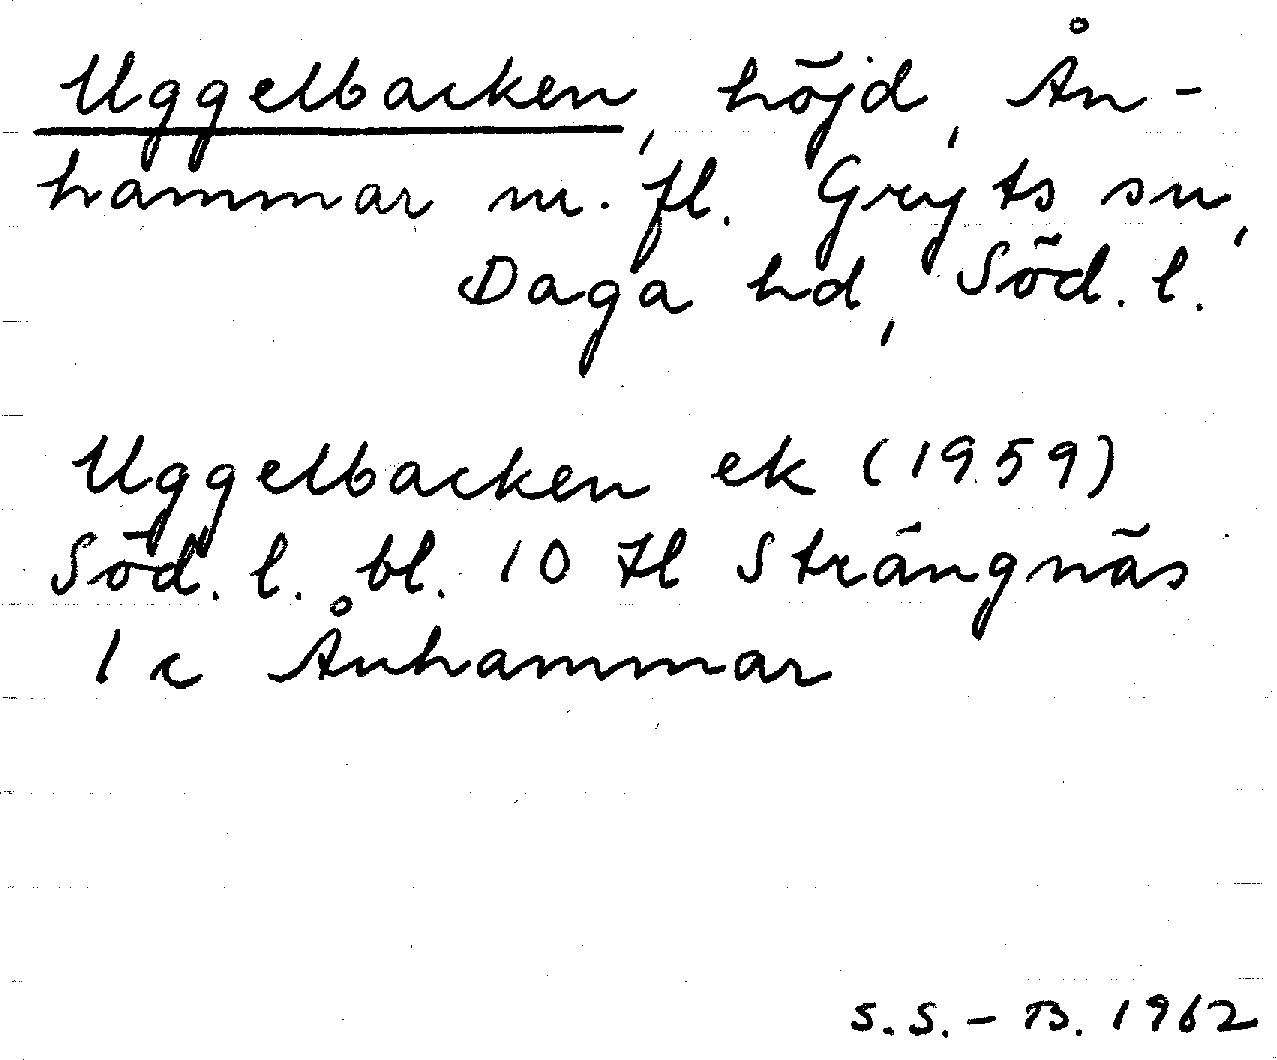 Uggelbacken, höjd, Ån-
hammar m. fl. Gryts sn,
Daga hd, Söd. l.
Uggelbacken ek (1959)
Söd. l. bl. 10 H Strängnäs
1 c Ånhammar
S.S.-B. 1962